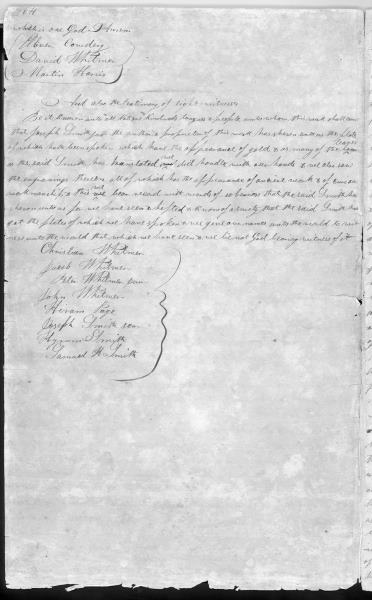 464
which is one God Amen
Oliver Cowdery
David Whitmer
Martin Harris
And also the testimony of eight witnesses
Be it known unto all nations kindreds tongues & people unto whom this work shall come
that Joseph Smith jr the author & proprietor of this work has shewn unto us the plates
of which hath been spoken which have the appearance of gold & as many of the leaves
as the said Smith has translated we did handle with our hands & we also saw
the engravings thereon all of which has the appearance of ancient work & of curious
workmanship & this we bear record with words of soberness that the said Smith has
shewn unto us for we have seen & hefted & know of a surety that the said Smith has
got the plates of which we have spoken & we give our names unto the world to wit-
ness unto the world that which we have seen & we lie not God bearing witness of it
Christian Whitmer
Jacob Whitmer
Peter Whitmer jun
John Whitmer
Hiram Page
Joseph Smith sen
Hyrum Smith
Samuel H Smith